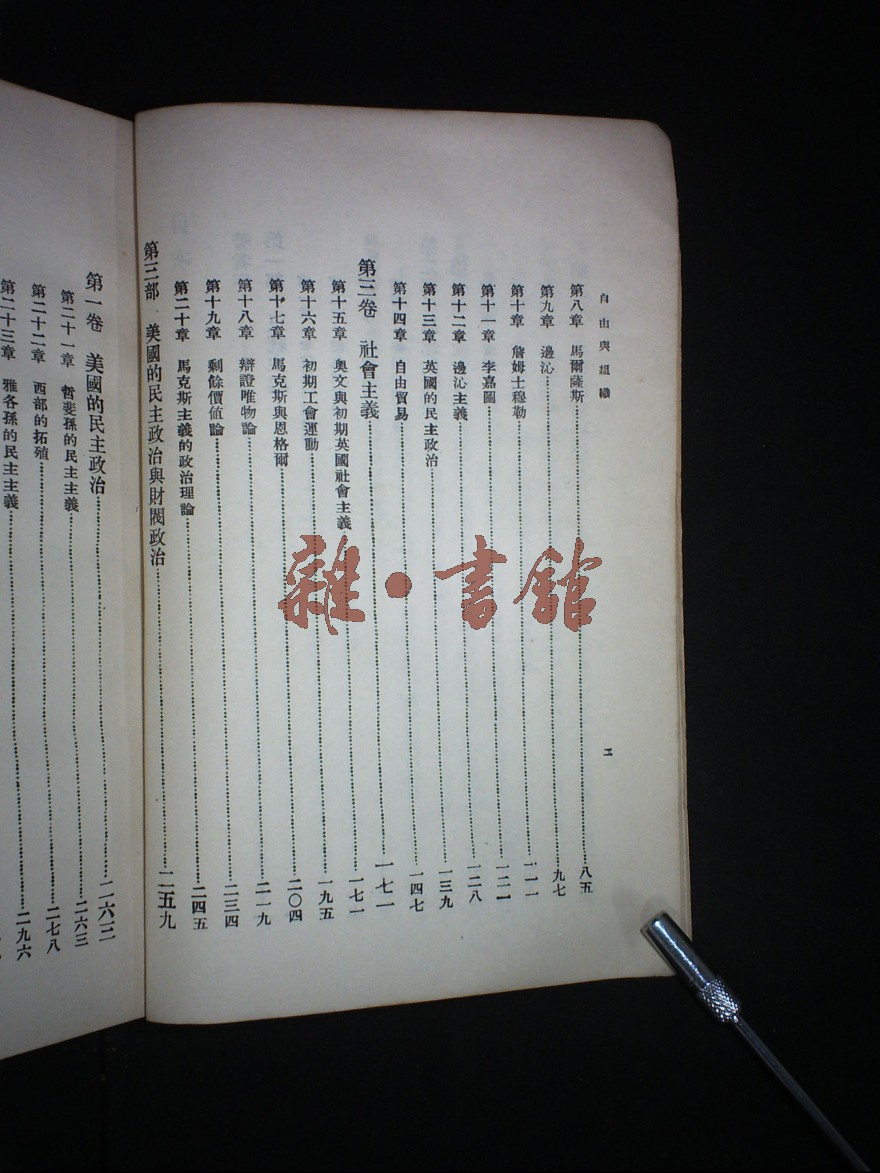 自由與組織
第八章 馬爾薩斯 八五
第九章 邊沁 九七
第十章 詹姆士穆勒 一一一
第十一章 李嘉圖 一二一
第十二章 邊沁主義 一二八
第十三章 英國的民主政治 一三九
第十四章 自由貿易 一四七
第三卷 社會主義 一七一
第十五章 奧文與初期英國社會主義 一七一
第十六章 初期工會運動 一九五
第十七章 馬克斯與恩格爾 二〇四
第十八章 辯證唯物論 二一九
第十九章 剩餘價值論 二三四
第二十章 馬克斯主義的政治理論 二四五
第三部 美國的民主政治與財閥政治 二五九
第一卷 美國的民主政治 二六三
第二十一章 哲斐孫的民主主義 二六三
第二十二章 西部的拓殖 二七八
第二十三章 雅各孫的民主主義 二九六
雜·書館